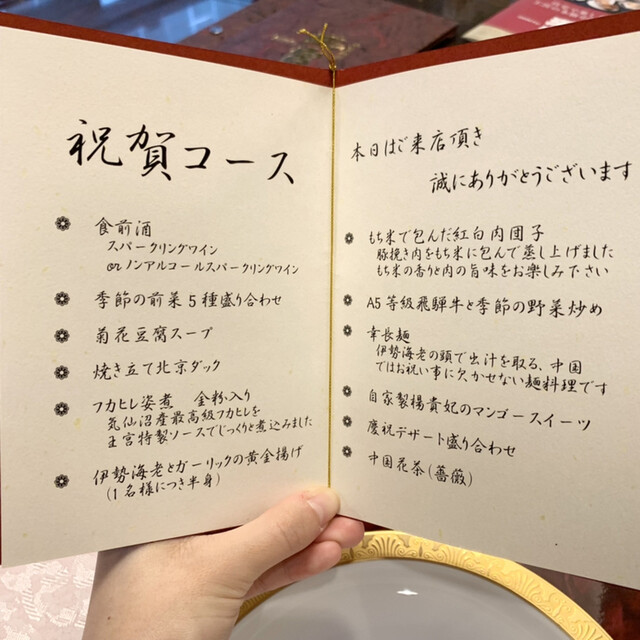 祝賀コース
食前酒
スパークリングワイン
orノンアルコールスパークリングワイン
季節の前菜5種盛り合わせ
菊花豆腐スープ
焼き立て北京ダック
フカヒレ姿煮 金粉入り
気仙沼産最高級フカヒレを
王宮特製ソースでじっくりと煮込みました
伊勢海老とガーリックの黄金揚げ
(1名様につき半身)
本日はご来店頂き
誠にありがとうございます
もち米で包んだ紅白肉団子
豚挽き肉をもち米に包んで蒸し上げました
もち米の香りと肉の旨味をお楽しみ下さい
A5等級飛騨牛と季節の野菜炒め
幸長麺
伊勢海老の頭で出汁を取る、中国
ではお祝い事に欠かせない麺料理です
自家製楊貴妃のマンゴースイーツ
慶祝デザート盛り合わせ
中国花茶(薔薇)